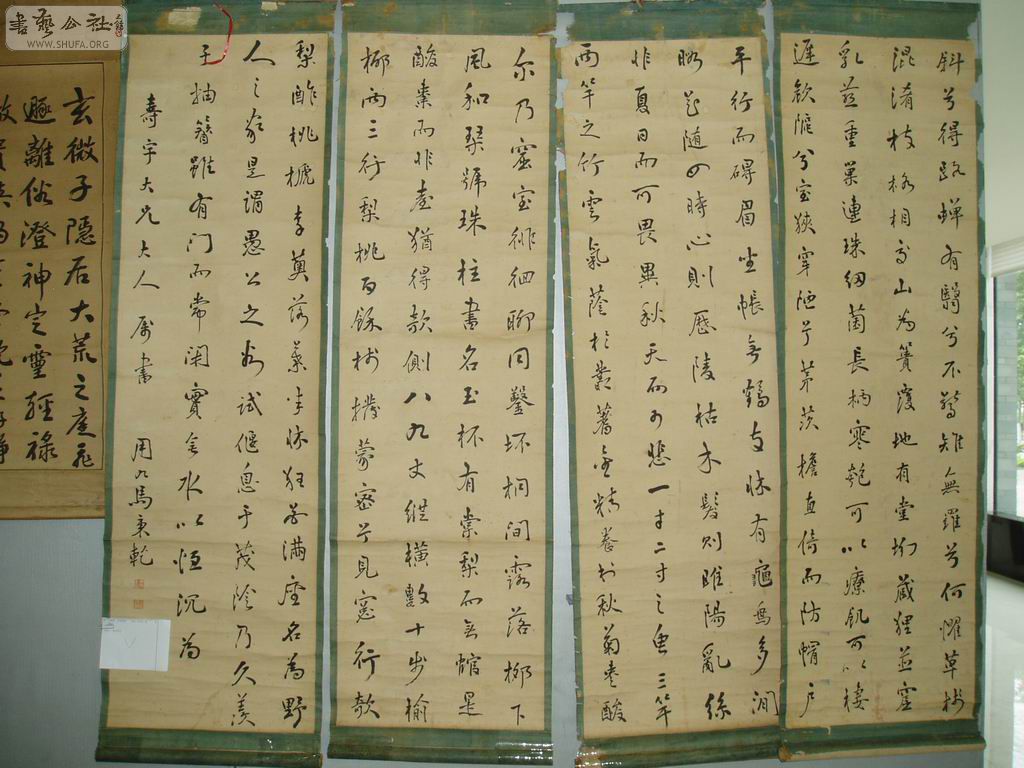 書藝公社
WWW.SHUFA.ORG
斜兮得路蟬有翳兮不驚雉無羅兮何懼草樹
混淆枝格相交山為簣覆地有堂坳藏狸並窟
乳重巢連珠細菌長柄寒匏可以療飢可以棲
遲欹隘兮室狹穿陋兮茅茨檐直倚而防帽戶
平行而碍眉坐帳無鶴支床有龜鳥多閒
暇花隨四時心則歷陵枯木髮則睢陽亂絲
非夏日而可畏異秋天而可悲一寸二寸之魚三竿
兩竿之竹雲氣蔭於叢蓍金精養於秋菊棗酸
尔乃窟室徘徊聊同鑿坏桐間露落柳下
風和琴號珠柱書名玉杯有棠梨而無館足
酸棗而非臺猶得欹側八九丈縱橫數十步榆
柳兩三行梨桃百餘樹撥蒙密兮見窗行欹
梨酢桃榹李薁落葉半床狂花滿屋名為野
人之家是謂愚公之谷試偃息于茂陰乃久羨
于抽簪雖有门而常閑實無水以恒沉為
壽宇大兄大人屬書 用九馬秉乾
玄微子隱居大荒之庭飛
遯離俗澄神定靈輕祿